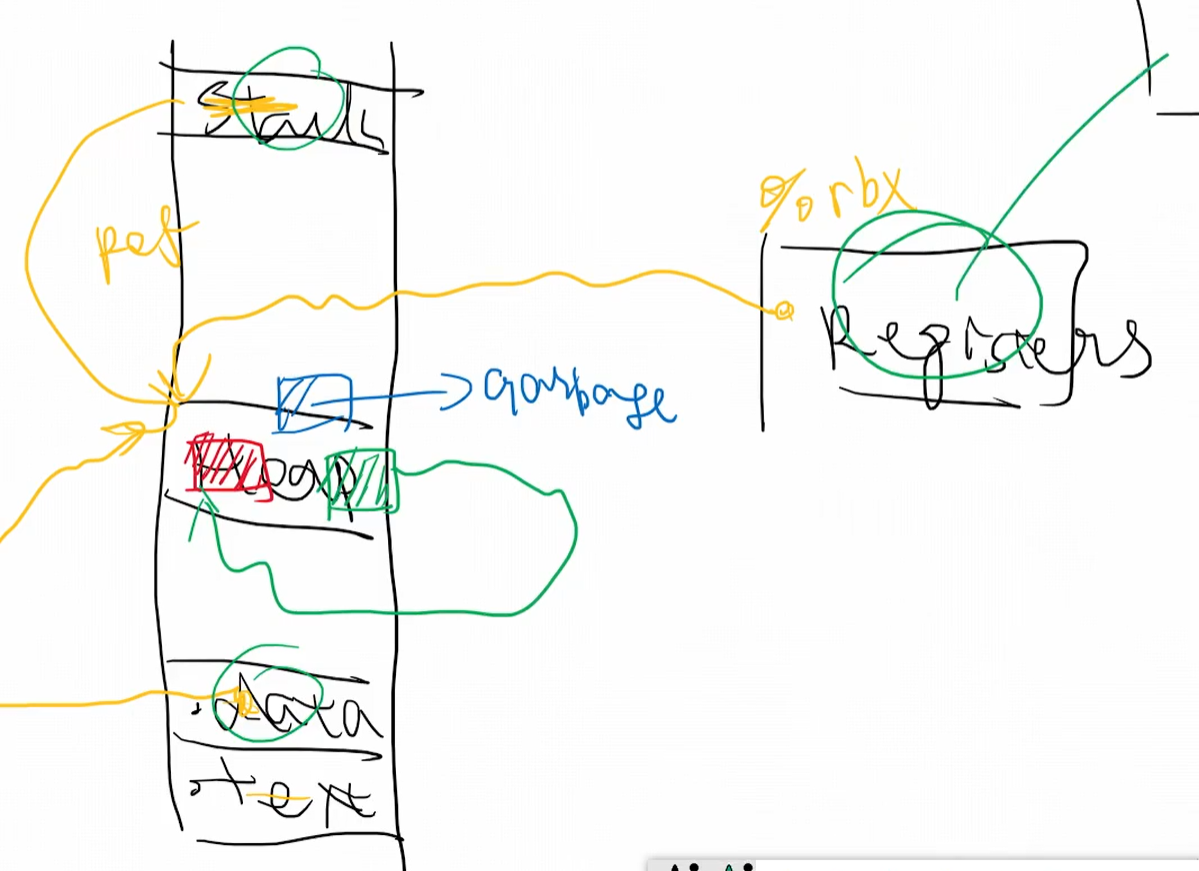 Stack
%rbx
ref
Registers
garbage
Heap
.data
.text